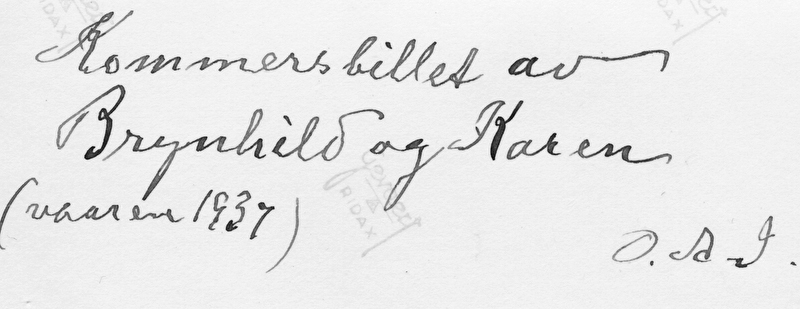 Kommersbillet av
Brynhild og Karen
(vaaren 1937)
O. A. J.
Gevaert
RIDAX